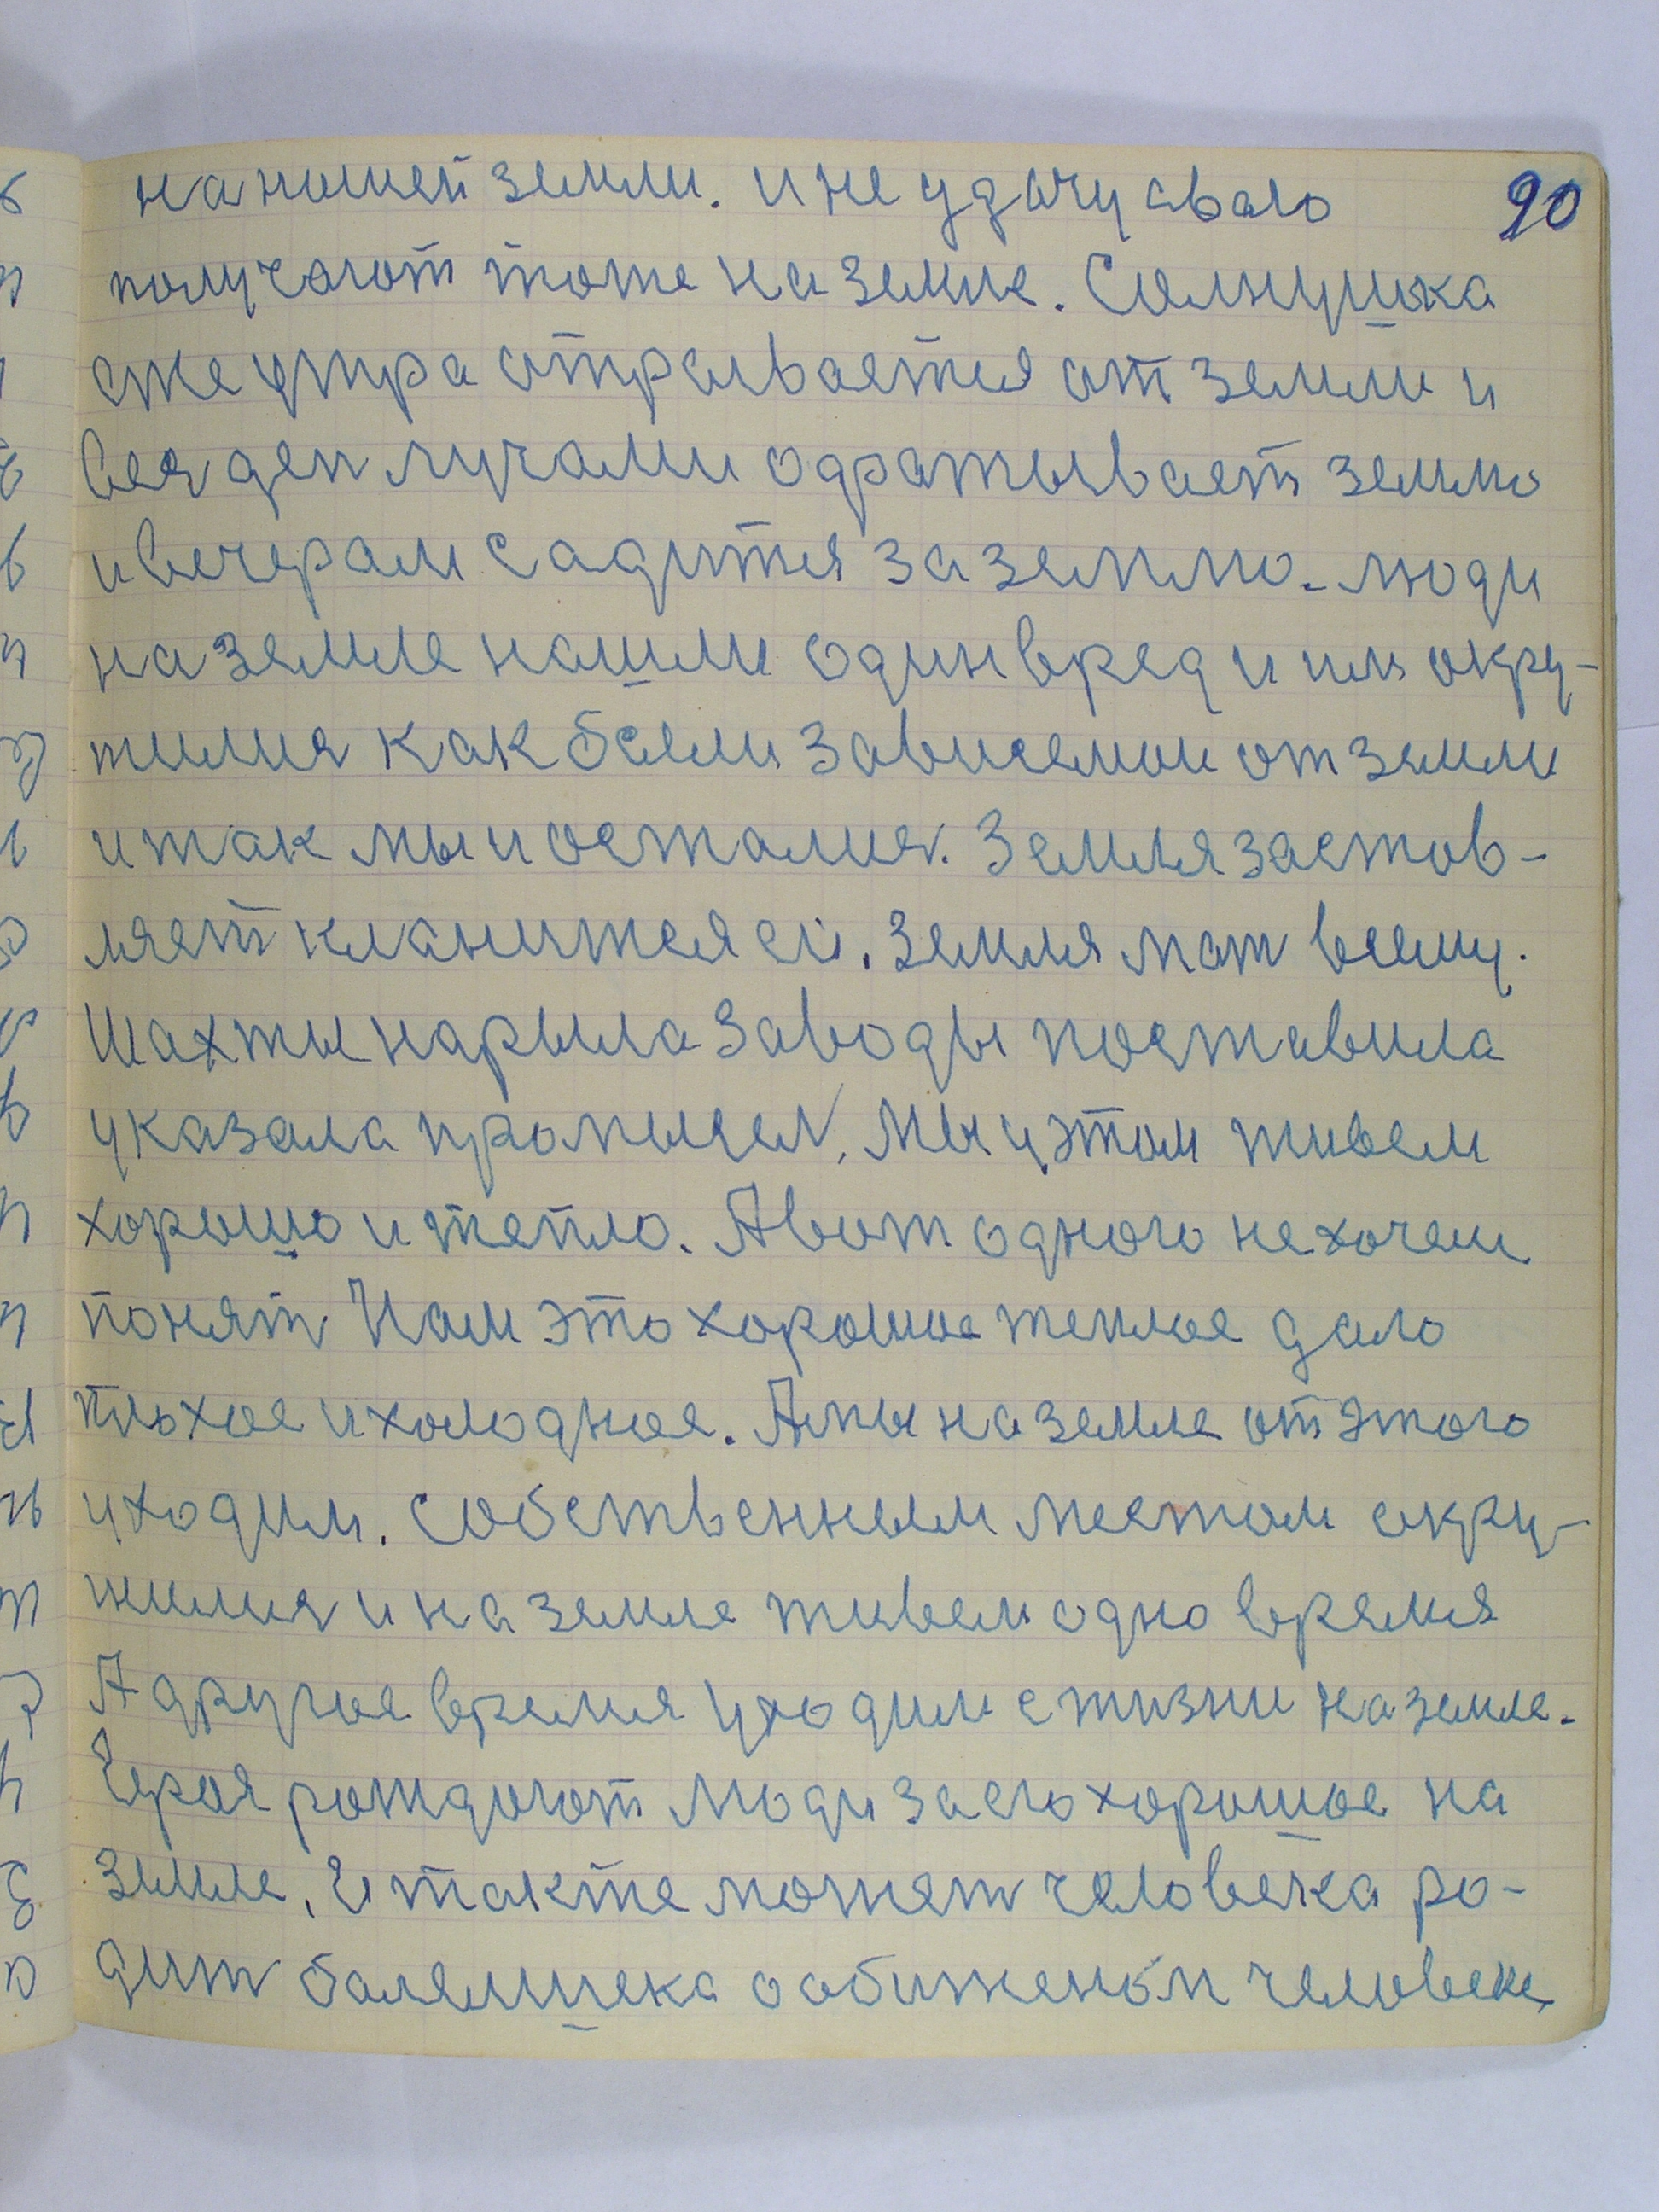 90
на нашей земли. и не удачу свою
получают тоже на земле. Солнушка
сже утра отрывается от земли и
вся ден лучами одратывает землю
и вечерам садится за землю. люди
на земле нашли один вред и им окру-
жился как были зависемои от земли
и так мы и остался. Земля застав-
ляет кланится ей. Земля мат всему.
Шахты нарыла заводы поставила
указала промысел, Мы у этом живем
хорошо и тепло. А вот одного не хочем
понят Нам это хорошое теплое дало
плохое и холодное. А мы на земле от этого
уходим. Собственным местом окру-
жился и на земле живем одно время
А другое время уходим с жизни на земле.
Героя рождают люди за его хорошое на
земле, И так же может человека ро-
дит болямшека о обиженом человеке